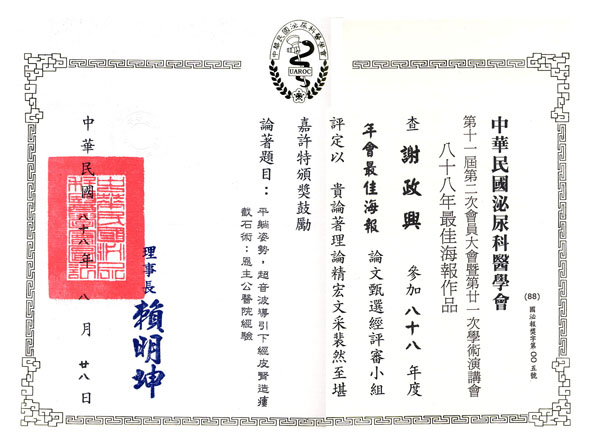 中華民國泌尿科醫學會
UAROC
(88)
國泌報獎字第〇〇五號
中華民國泌尿科醫學會
第十一屆第二次會員大會暨第廿一次學術演講會
八十八年最佳海報作品
查 謝政興 參加八十八年度
年會最佳海報 論文甄選經評審小組
評定以 貴論著理論精宏文采裴然至堪
嘉許特頒獎鼓勵
論著題目：平躺姿勢，超音波導引下經皮腎造瘻
截石術：恩主公醫院經驗
理事長 賴明坤
中華民國八十八年 八月 廿八日